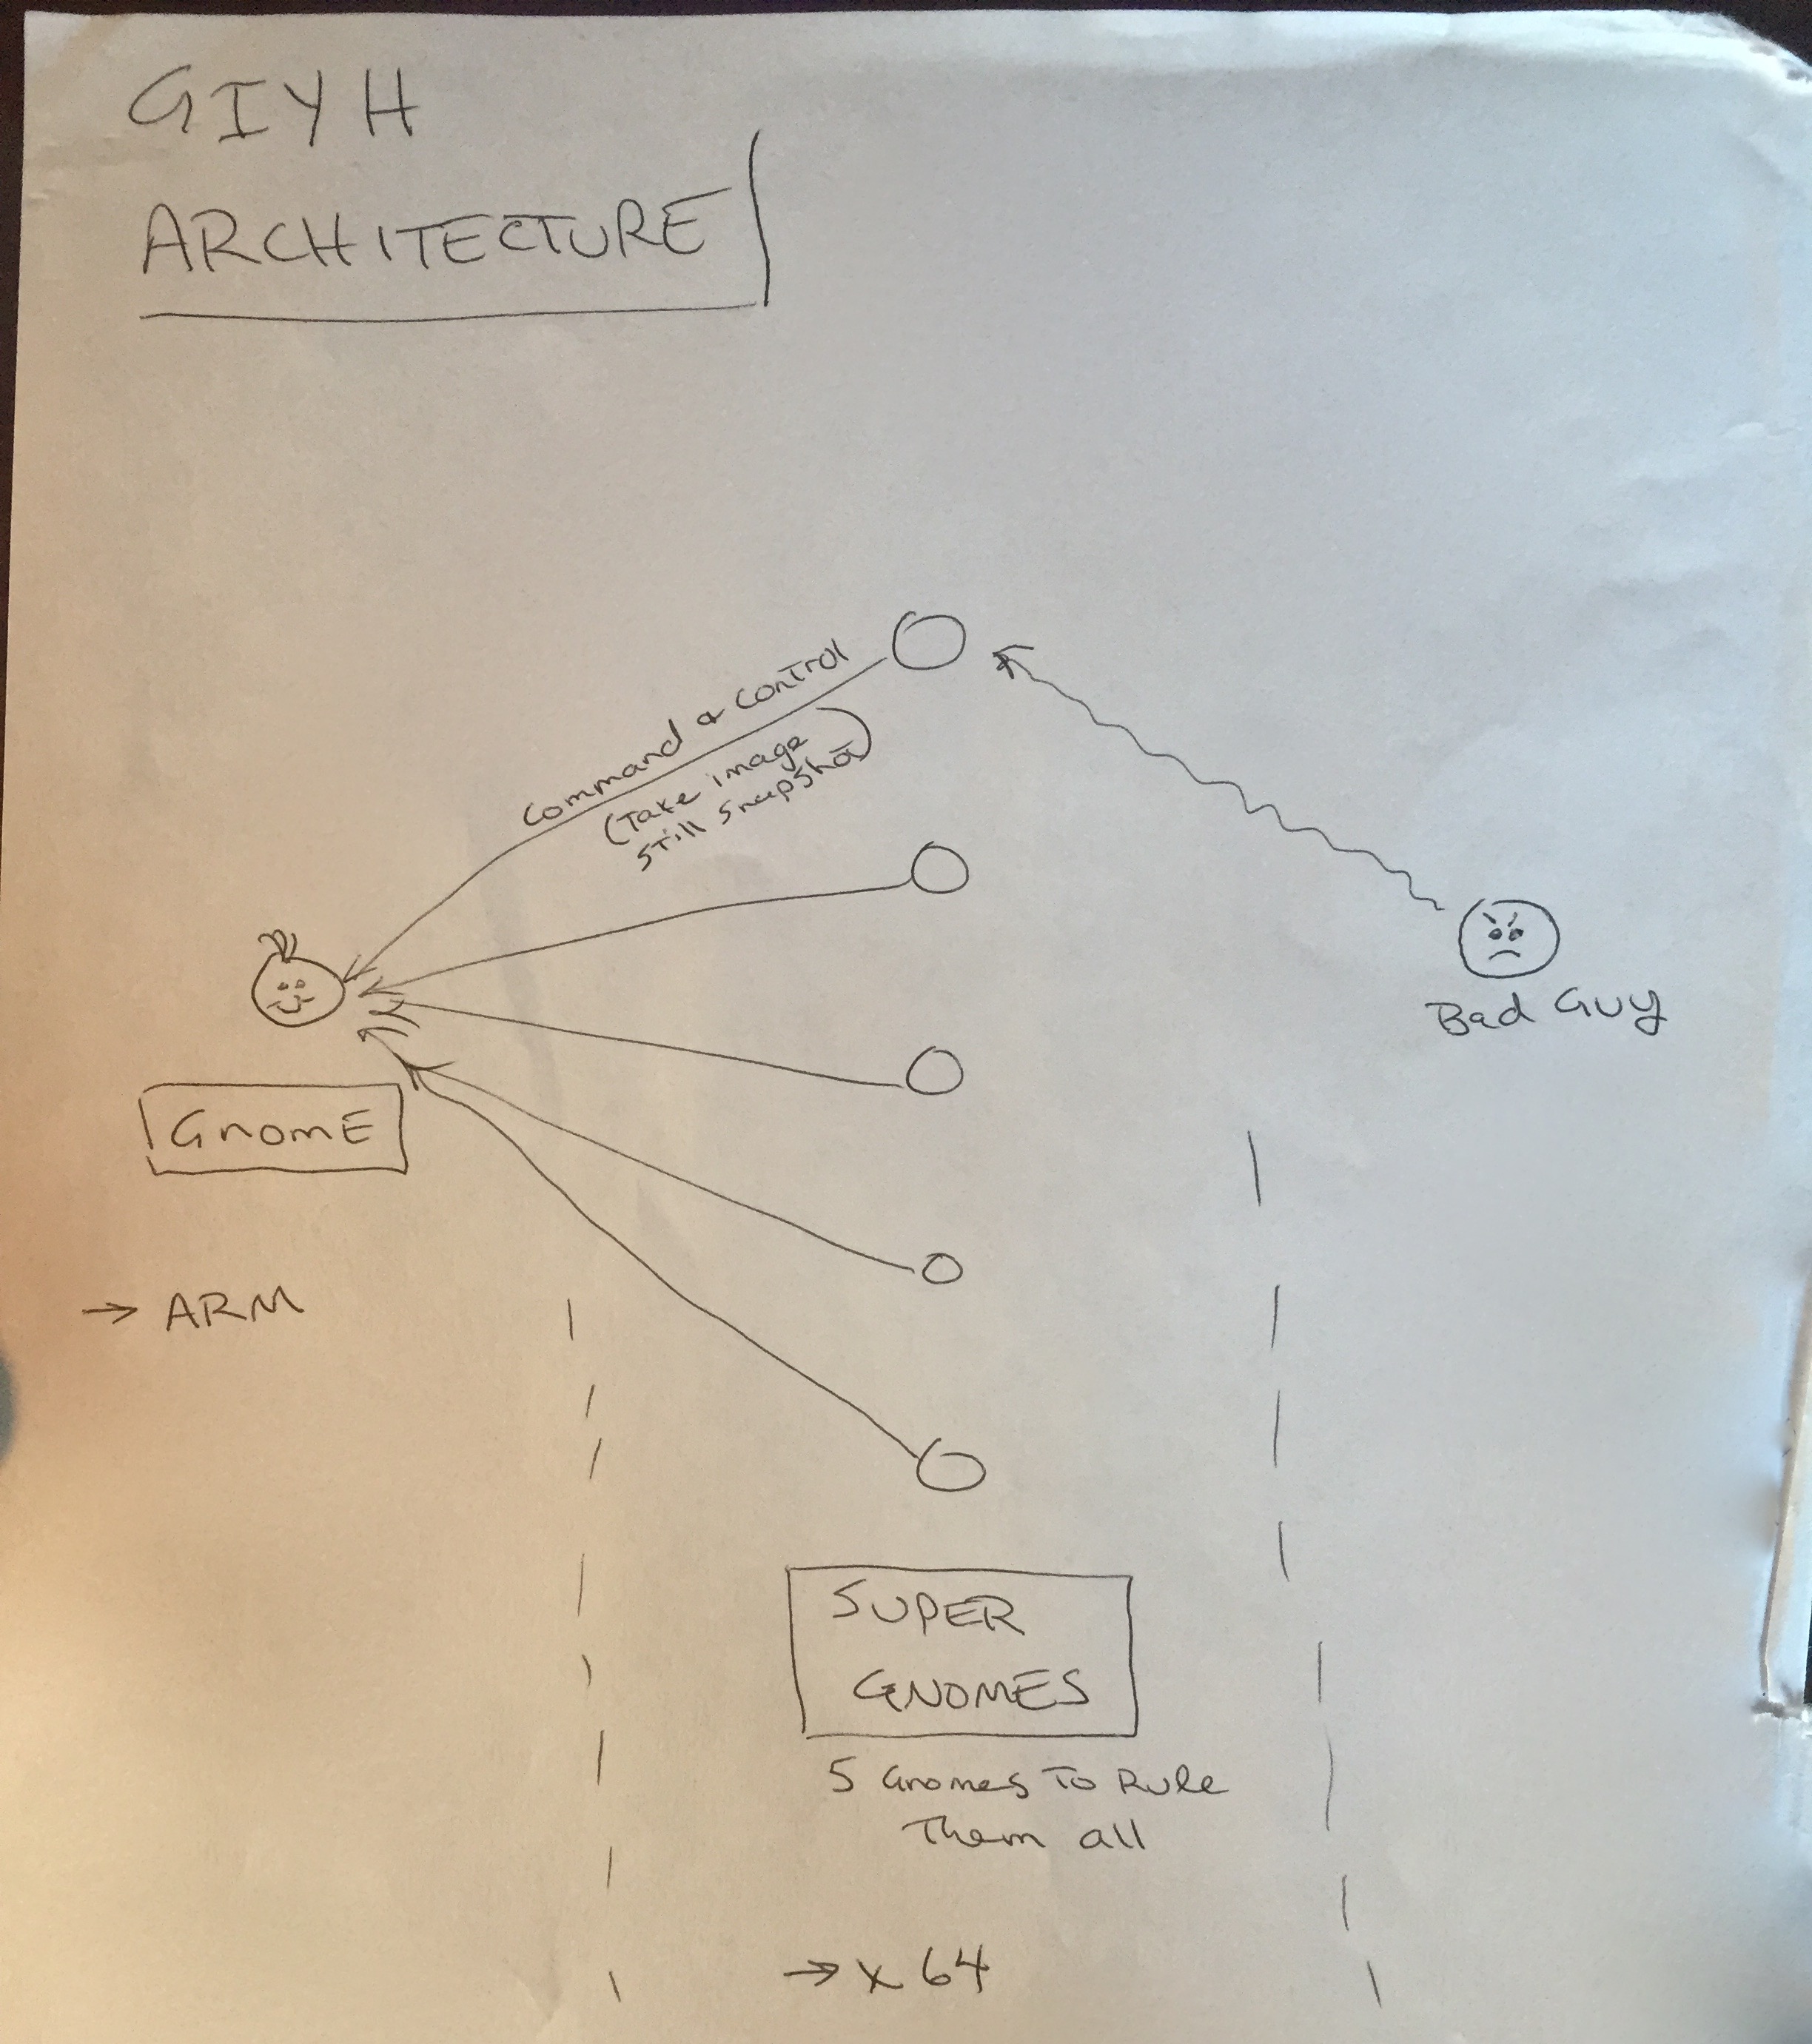 GIYH
ARCHITECTURE
Command & Control
(Take image
still snapshot)
Bad Guy
GnomE
→ ARM
SUPER
GNOMES
5 Gnomes To Rule
Them all
→ x64